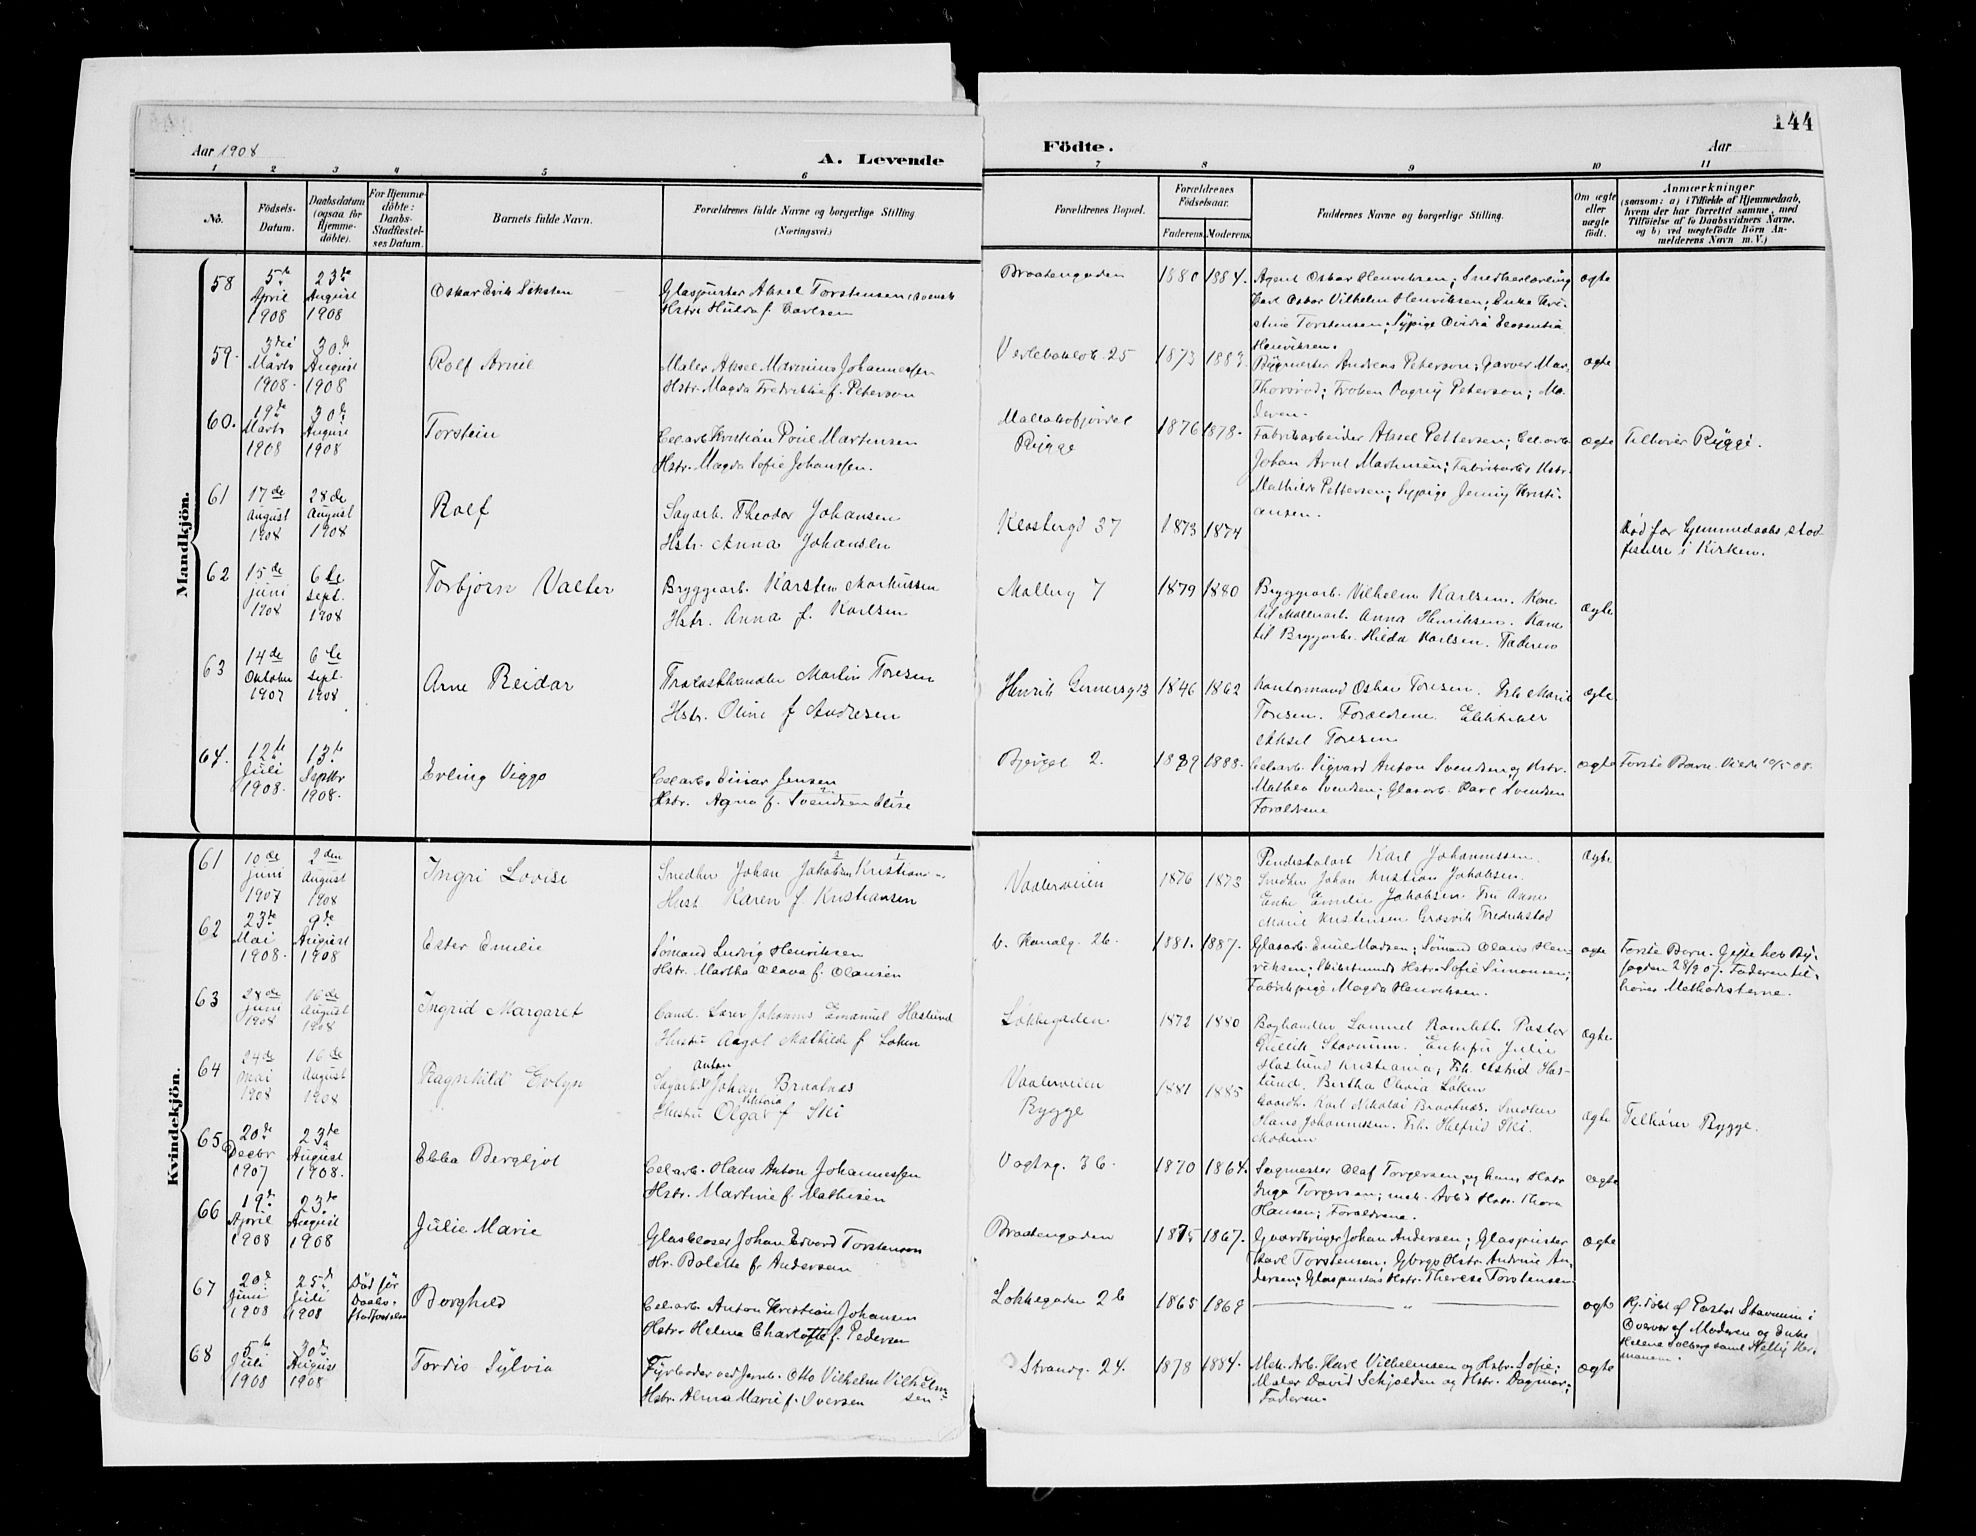 144
Aar 1908
A. Levende
Födte.
Aar
1 2 3 4 5 6 7 8 9 10 11
No.
Födsels-
Datum.
Daabsdatum
(ogsaa for
Hjemme-
döbte).
For Hjemme-
döbte:
Daabs-
Stadfæstel-
ses Datum.
Barnets fulde Navn.
Forældrenes fulde Navne og borgerlige Stilling
(Næringsvei.)
Forældrenes Bopæl.
Forældrenes
Födselsaar.
Faderens. Moderens.
Faddernes Navne og borgerlige Stilling.
Om ægte
eller
uægte
födt.
Anmærkninger
(saasom: a) i Tilfælde af Hjemmedaab,
hvem der har forrettet samme, med
Tilföielse af to Daabsvidners Navne,
og b) ved uægtefödte Börn An-
melderens Navn m. V.)
Mandkjön.
58
5te
April
1908
23de
August
1908
Oskar Erik Siksten
Glaspuster Aksel Torstensen
Hstr Hulda f. Carlsen
Braatengaden
1880 1884.
Agent Oskar Henriksen; Snedkerlærling
Carl Oskar Vilhelm Henriksen; Enke Kri-
stine Torstensen; Sypige Ovidia
Henriksen.
ægte
59.
3die
Marts
1908.
30de
August
1908
Rolf Arvid
Maler Aksel Marinius Johannessen
Hstr. Magda Fredrikke f. Peterson
25
1873 1883.
Andreas Peterson; Garver
Thorsrød; Frøken Dagny Peterson; Mo-
deren.
ægte
60.
19de
Marts
1908
30de
August
1908
Torstein
Cel.arb. Kristian Povel Martensen
Hstr. Magda Sofie Johanssen.
Rygge
1876 1878.
Fabrikarbeider Aksel Pettersen; Cel.arb.
Johan Arvel Martinsen; Fabrikarb. Hstr.
Mathilde Pettersen; Sypige Jenny Kristi-
ansen.
ægte
Tilhører Rygge.
61
17de
August
1908
28de
August
1908
Rolf
Sagarb. Theodor Johansen
Hstr. Anna Johansen
Klostergd 37
1873 1874
Død før hjemmedaabs stad-
festelse i Kirken.
62
15de
juni
1908
6te
Sept.
1908
Torbjørn Valter
Bryggearb. Karsten Markussen
Hstr. Anna f. Karlsen
Møllerg 7
1879 1880
Bryggearb. Vilhelm Karlsen. Kone
til Møllearb. Anna Henriksen. Kone
til Bryggarb. Hilda Karlsen. Faderen
ægte
63
14de
Oktober
1907
6te
Sept.
1908
Arne Reidar
Martin Toresen
Hstr. Oline f Andresen
Henrik Gerners g 13
1846 1862
Kontormand Oskar Toresen. Frk. Marie
Toresen. Forældrene. Elektriker
Aksel Toresen
ægte
64.
12te
Juli
1908.
13de
Septbr
1908.
Erling Viggo
Cel.arb. Einar Jensen
Hstr. Agna f. Svendsen Elise
2.
1889 1888.
Cel.arb. Sigvard Anton Svendsen og Hstr.
Mathea Svendsen; Glasarb. Carl Svendsen
Forældrene
ægte
Første Barn. Viede 10/5 08.
Kvindekjön.
61
10de
juni
1907
2den
August
1908
Ingri Lovise
Snedker Johan Jakobsen Kristian
Hust. Karen f Kristiansen
Vaalerveien
1876 1873
Karl Johannessen
Snedker Johan Kristian Jakobsen.
Enke Emilie Jakobsen. Fru Anne
Marie Kristensen Græsvik Fredrikstad
ægte
62
23de
Mai
1908.
9de
August
1908
Ester Emilie
Sømand Ludvig Henriksen
Hstr. Martha Olava f. Olausen
v. Kanalg. 26.
1881. 1887.
Glasarb. Emil Madsen; Sømand Olaus Hen-
riksen; Hstr. Sofie Simonsen;
Fabrikpige Magda Henriksen.
ægte
Første Barn. Gifte hos By-
fogden 28/9 07. Faderen til-
hører Methodisterne.
63
28de
juni
1908
16de
August
1908
Ingrid Margaret
Cand. Lærer Johannes Emanuel Haslund
Hustru Aagot Mathilde f Løken
Løkkegaden
1872 1880
Boghandler Samuel Ramleth. Pastor
Gullik Stavnum. Enkefru Julie
Haslund Kristiania, Frk. Astrid Has-
lund. Bertha Olivia Løken
ægte
64
24de
Mai
1908
16de
August
1908
Ragnhild Evelyn
Anton
Sagarb. Johan Braatnæs
Viktoria
Hustru Olga f Ski
Vaalerveien
Rygge
1881 1885
Gaardb. Karl Nikolai Braatnæs. Snedker
Hans Johannessen. Frk. Helfrid Ski.
Moderen
ægte
Tilhører Rygge.
65
20de
Decbr
1907
23de
August
1908.
Ebba Bergljot
Cel.arb. Hans Anton Johannessen
Hstr. Martine f. Mathisen
Vogtsg. 36.
1870 1864.
Sagmester Olaf Torgersen og hans Hstr.
Inga Torgersen; mek. Arb.s Hstr. Thora
Hansen; Forældrene.
ægte
66
19de
April
1908
23de
August
1908
Julie Marie
Glasblæser Johan Edvard Torstensen
Hr. Bolette f. Andersen
Braatengaden
1875 1867.
Gaardbruger Johan Andersen; Glaspuster
Karl Torstensen; Gbrgs Hstr. Andrine An-
dersen; Glaspusters Hstr. Therese Torstensen
ægte
67
20de
Juni
1908
25de
Juli
1908
Død før
Daabs-
stadfæstelse
Borghild
Cel.arb. Anton Kristian Johansen
Hstr. Helma Charlotte f. Pedersen
Løkkegaden 26
1865 1868
— " —
ægte
Hj. døbt af Pastor Stavnum i
Overvær af Moderen og Enke
Helene Solberg samt Nelly Her-
mansen.
68
5te
Juli
1908
30de
August
1908
Tordis Sylvia
Fyrbøder ved Jernb. Otto Vilhelm Vilhelm-
sen
Hstr. Alma Marie f. Iversen
Strandg. 24.
1878 1884.
Mek. Arb. Karl Vilhelmsen og Hstr. Sofie;
Maler David Schjolden og Hstr. Dagmar;
Faderen.
ægte